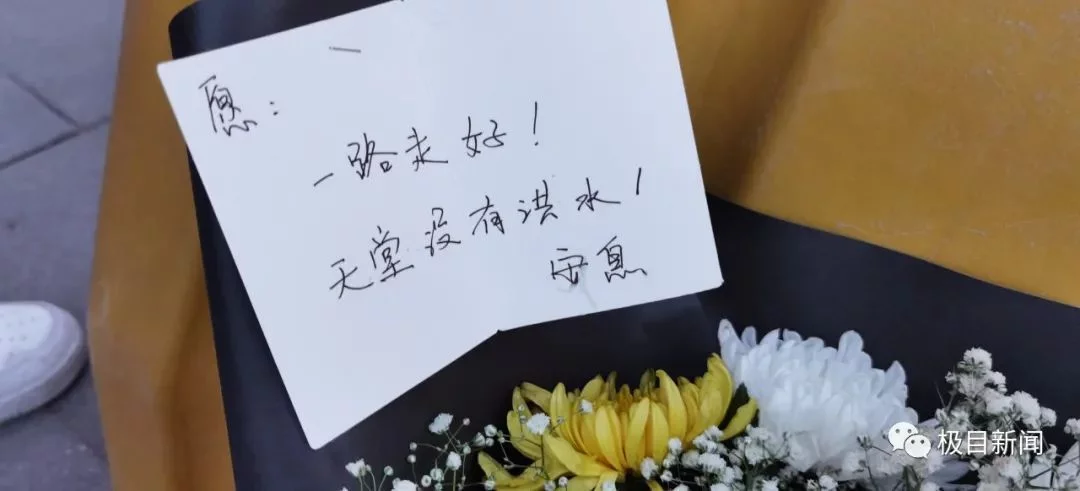 愿：
一路走好！
天堂没有洪水！
安息
极目新闻